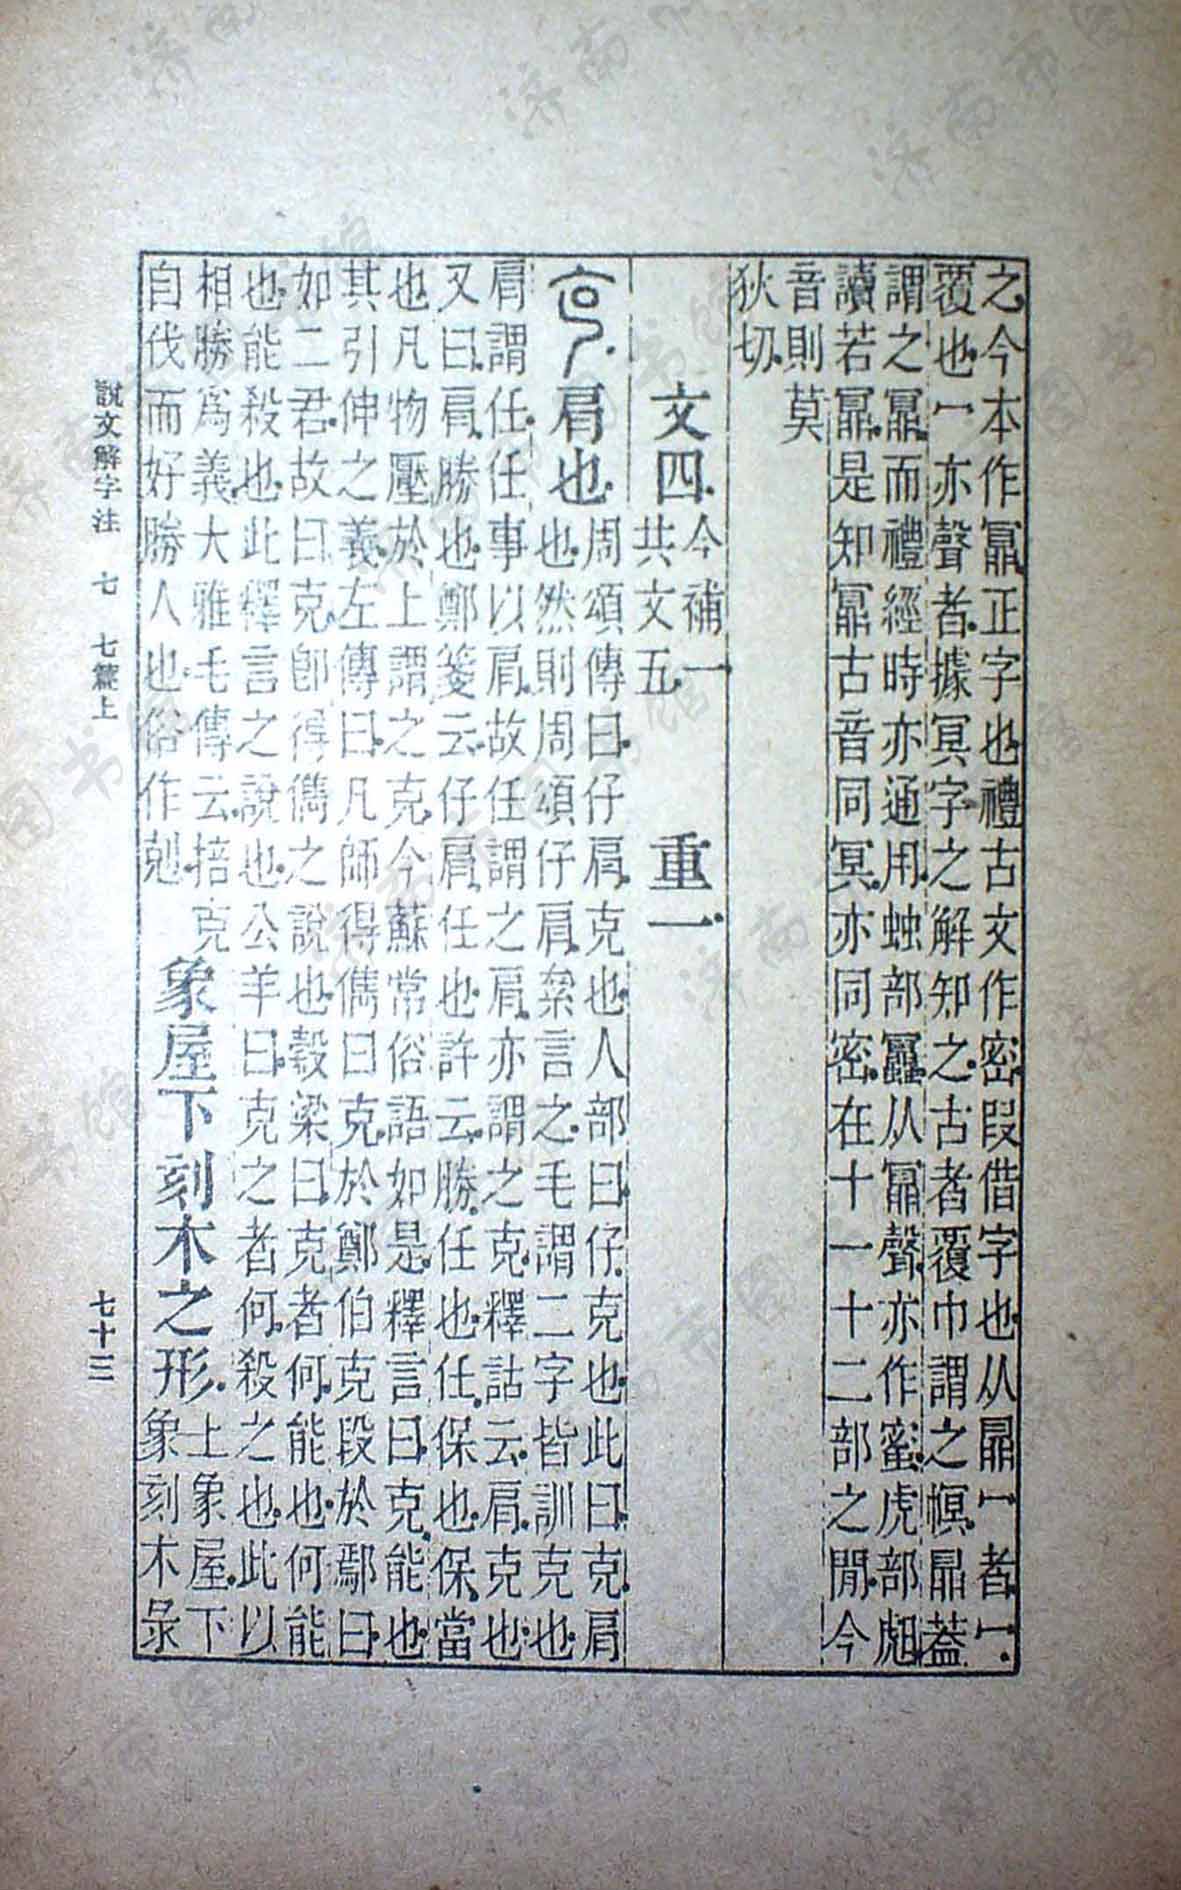 之今本作鼏正字也禮古文作密叚借字也从鼎冖者冖
覆也冖亦聲者據冥字之解知之古者覆巾謂之幎鼎蓋
謂之鼏而禮經時亦通用䖵部𧖅从鼏聲亦作蜜虎部䖑
讀若鼏是知鼏古音同冥亦同密在十一十二部之閒今
音則莫
狄切
文四
今補一
共文五
重一
肩也
周頌傳曰仔肩克也人部曰仔克也此曰克肩
也然則周頌仔肩絫言之毛謂二字皆訓克也
肩謂任任事以肩故任謂之肩亦謂之克釋詁云肩克也
又曰肩勝也鄭箋云仔肩任也許云勝任也任保也保當
也凡物壓於上謂之克今蘇常俗語如是釋言曰克能也
其引伸之義左傳曰凡師得儁曰克於鄭伯克段於鄢曰
如二君故曰克卽得儁之說也穀梁曰克者何能也何能
也能殺也此釋言之說也公羊曰克之者何殺之也此以
相勝爲義大雅毛傳云掊克
自伐而好勝人也俗作剋
象屋下刻木之形
上象屋下
象刻木彔
說文解字注 七 七篇上
七十三